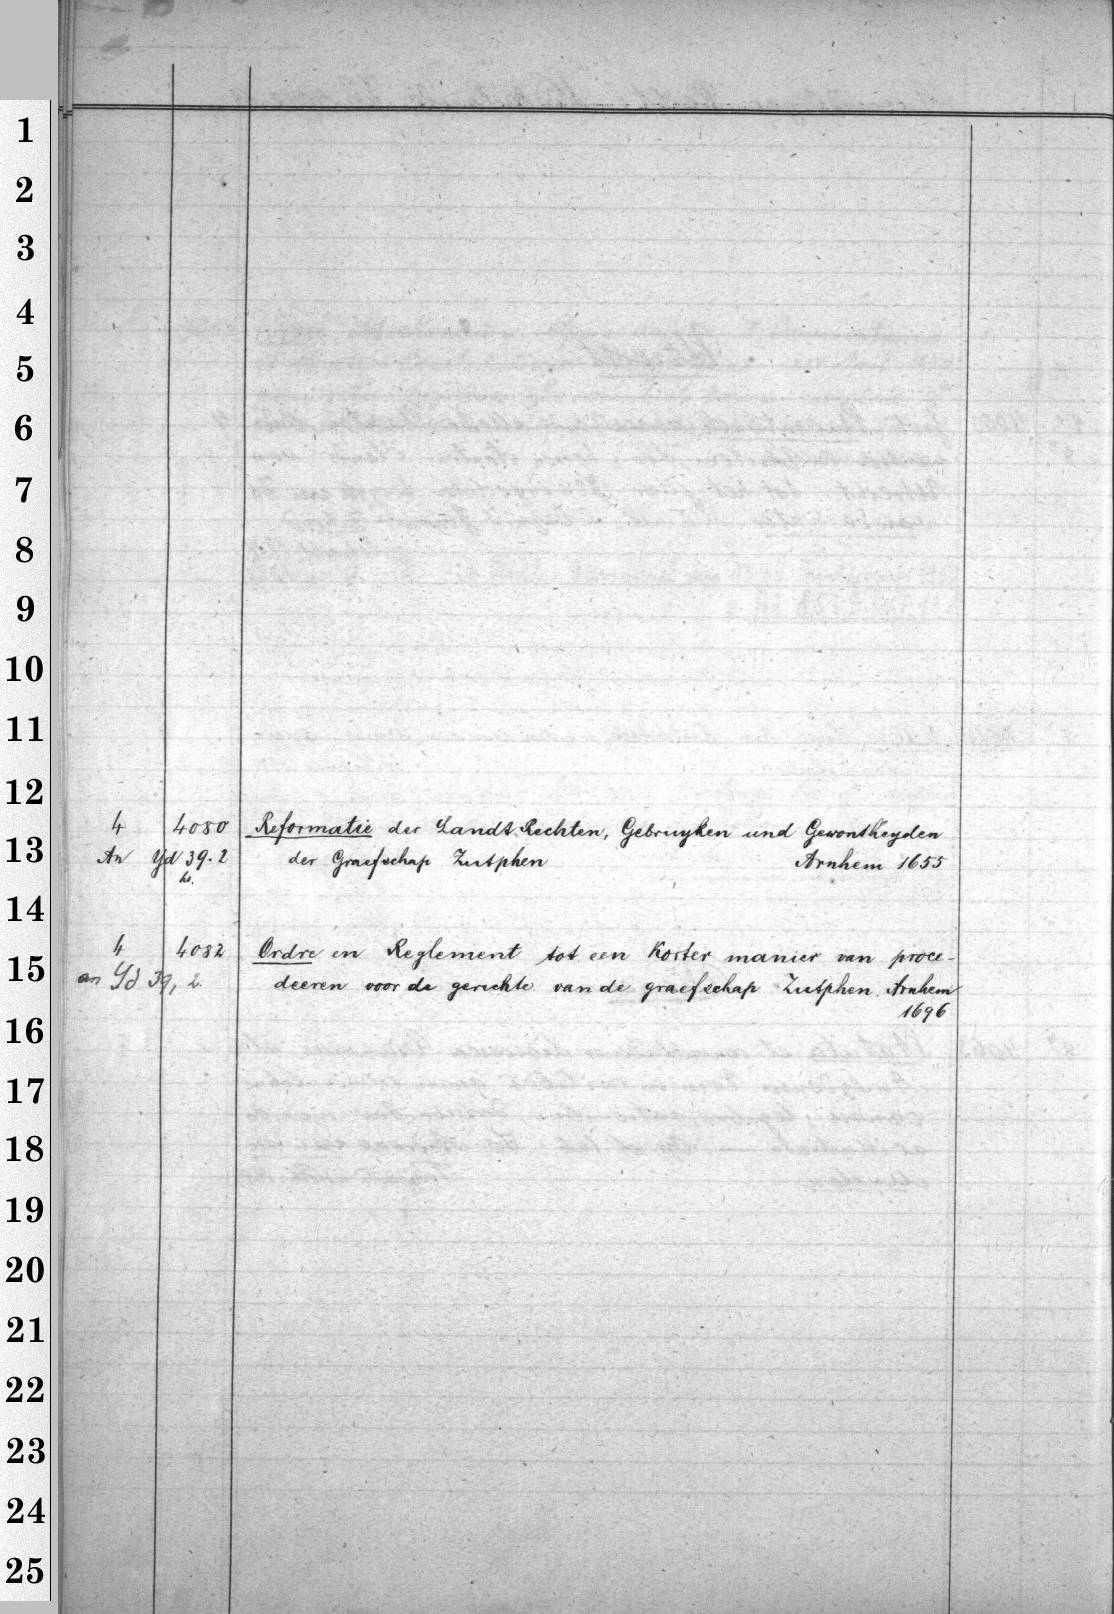 1
2
3
4
5
6
7
8
9
10
11
12
4 4080 Reformatie der Landt Rechten, Gebruyken und Gewontheyden
13
An Yd 39.2 der Graefschap Zutphen Arnhem 1655
14
4 4082 Ordre en Reglement tot een Korter manier van proce-
15
an Yd 39, 2. deeren voor de gerichte van de graefschap Zutphen. Arnhem
1696
16
17
18
19
20
21
22
23
24
25